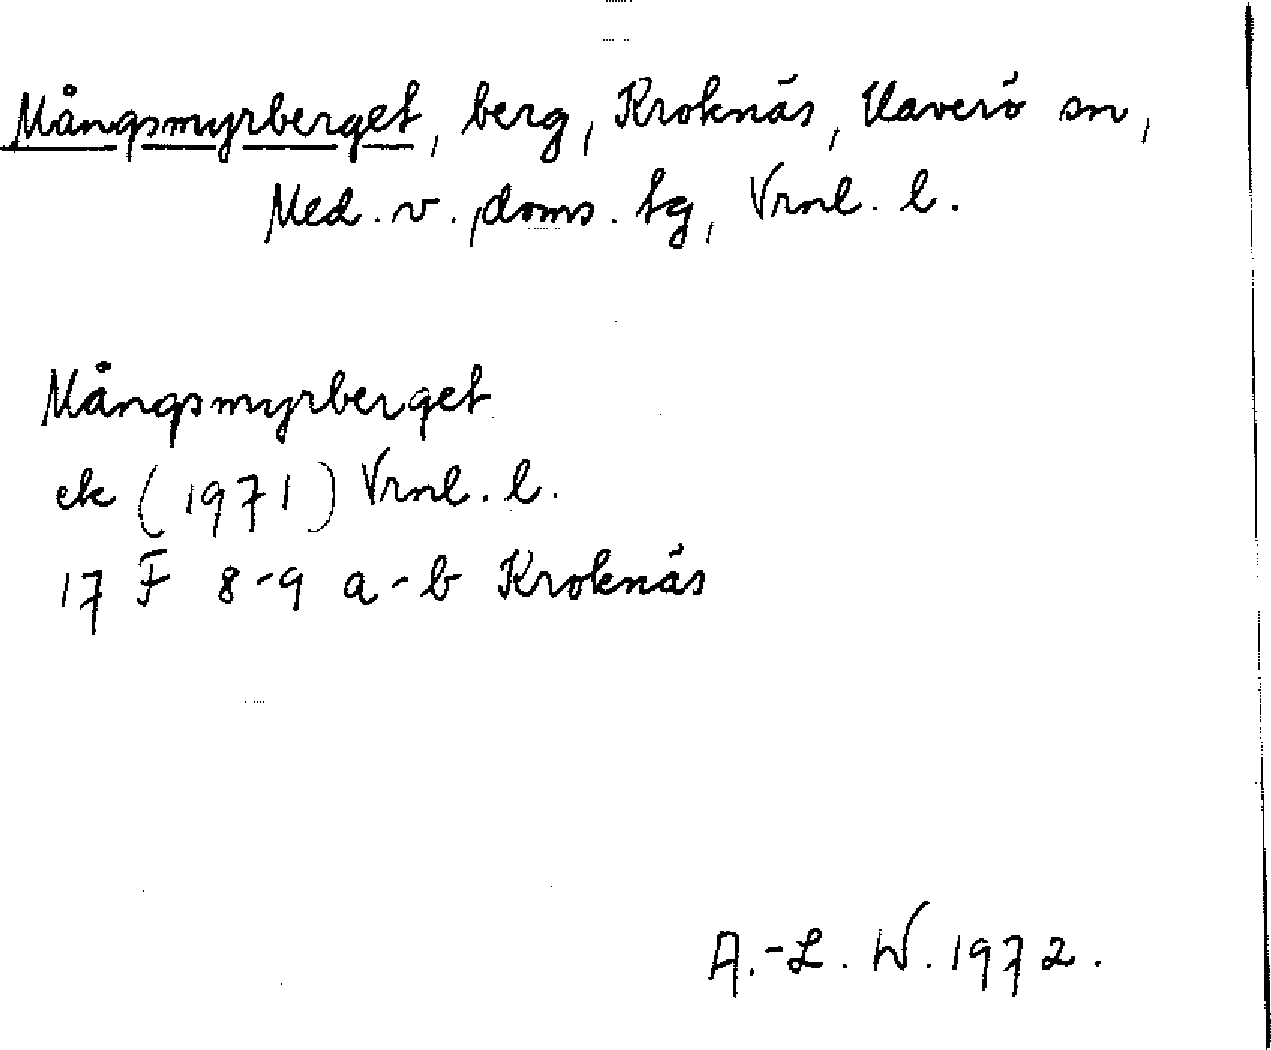 Mångsmyrberget, berg, Kroknäs, Haverö sn,
Med. v., doms. tg, Vrnl. l.
Mångsmyrberget
ek (1971) Vrnl. l.
17 F 8-9 a-b Kroknäs
A.-L. W. 1972.